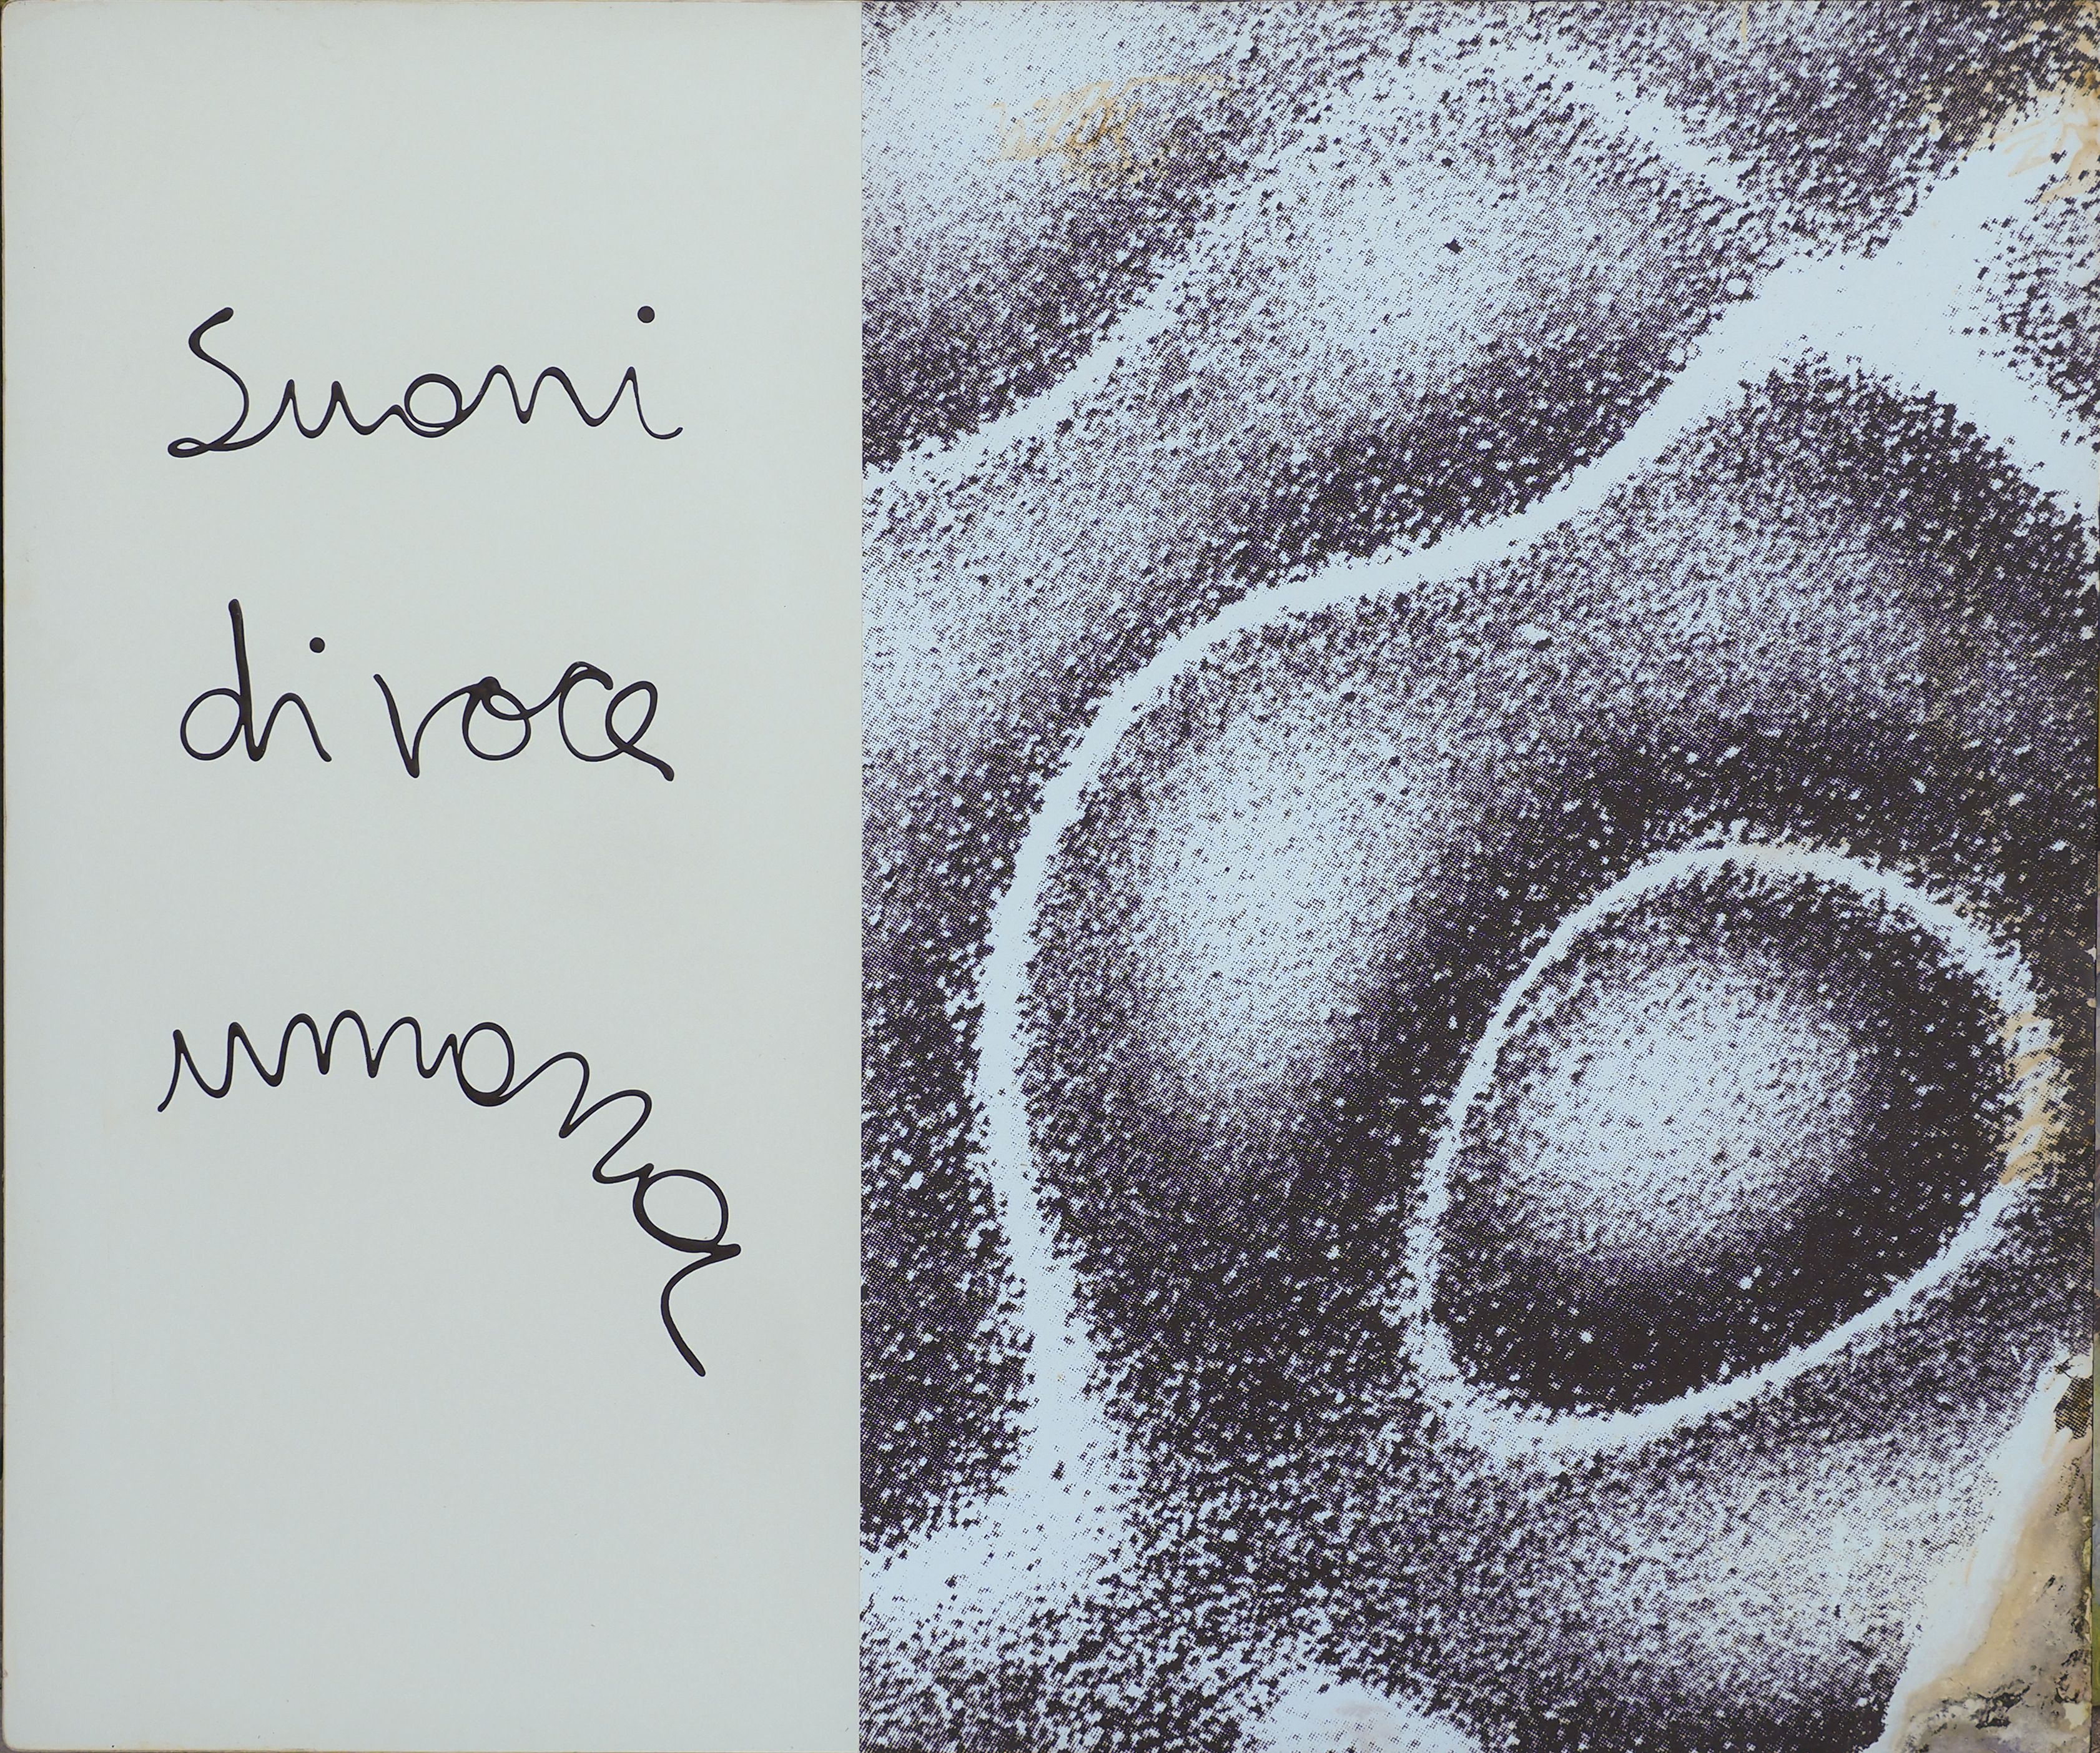 Suoni
di voce
umana